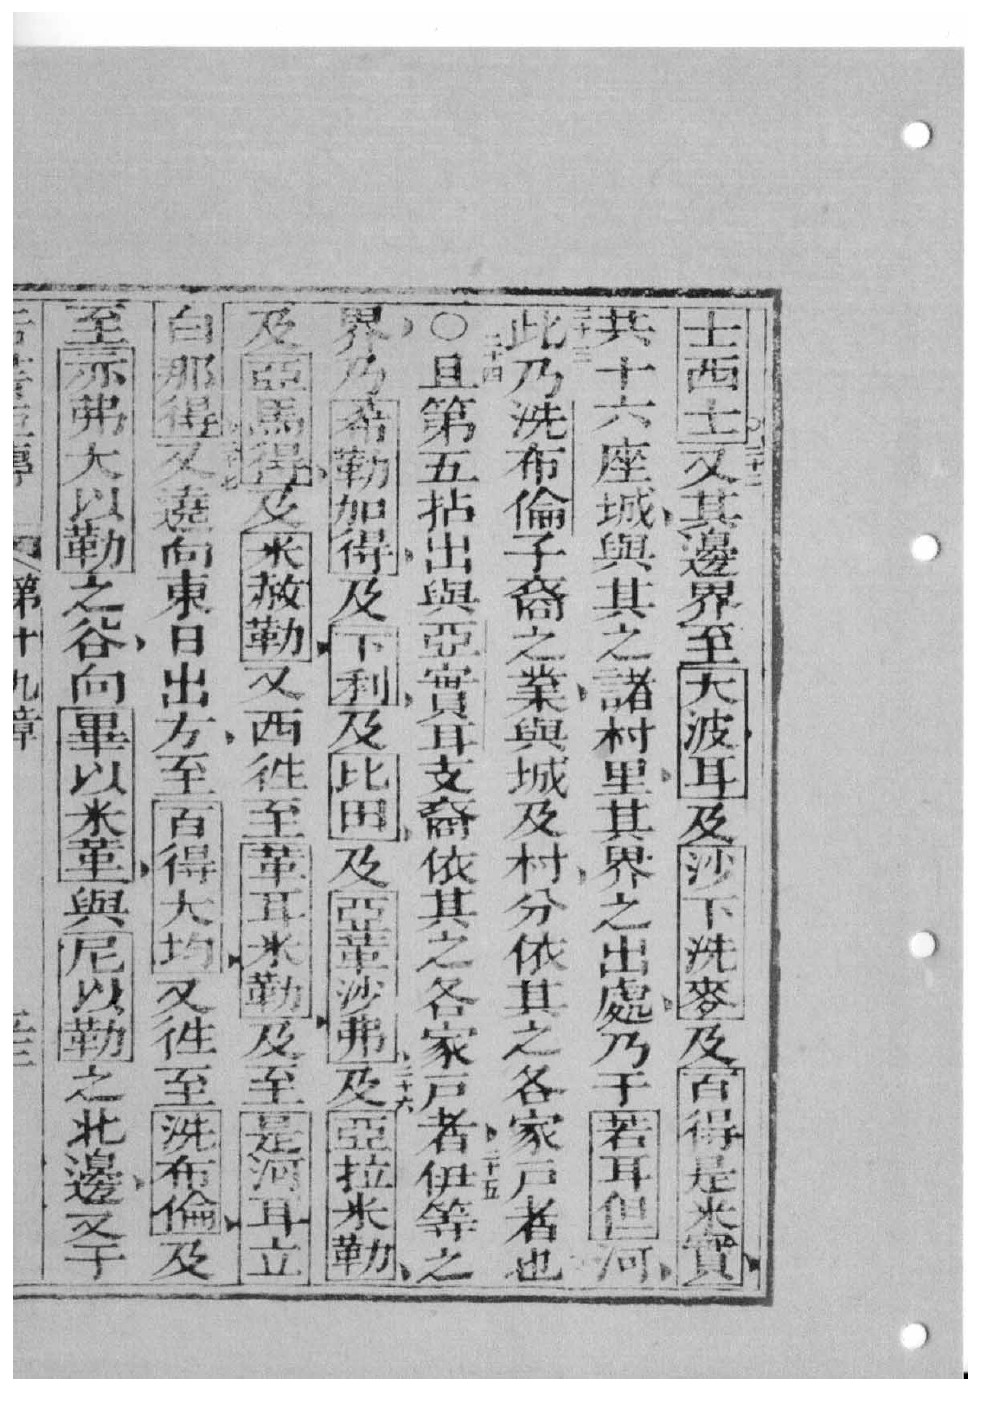 士西士又其邊界至大波耳及沙下洗麥及百得是米實
二十二
共十六座城與其之諸村里其界之出處乃于若耳但河
二十三
此乃洗布倫子裔之業與城及村分依其之各家戸者也
二十四
○且第五拈出與亞實耳支裔依其之各家戸者伊等之
二十五
界乃希勒加得及下利及比田及亞革沙弗及亞拉米勒
二十六
及亞馬得及米赦勒又西徃至革耳米勒及至是河耳立
白那得又遶向東日出方至百得大均又徃至洗布倫及
二十七
至亦弗大以勒之谷向畢以米革與尼以勒之北邊又于
第十九章